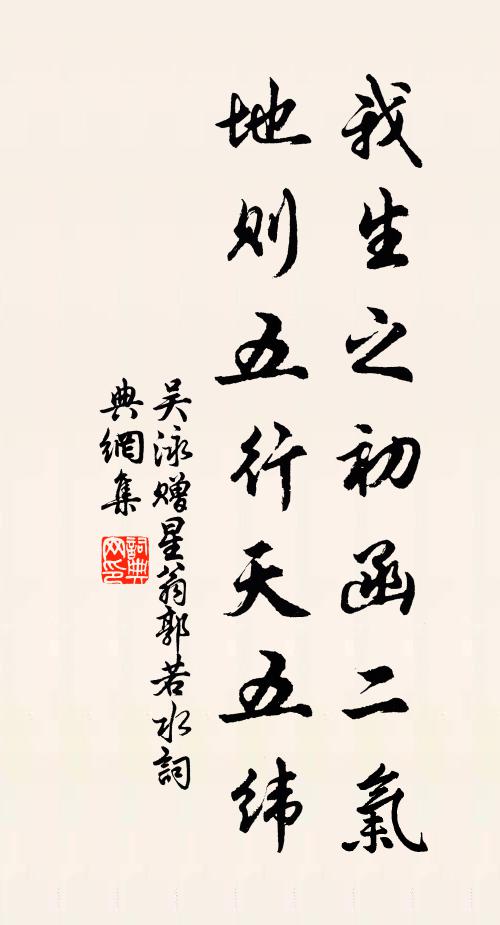 我生之初函二氣
地则五行天五纬
吴泳赠星翁郭若水詞
典網集
詞典网印